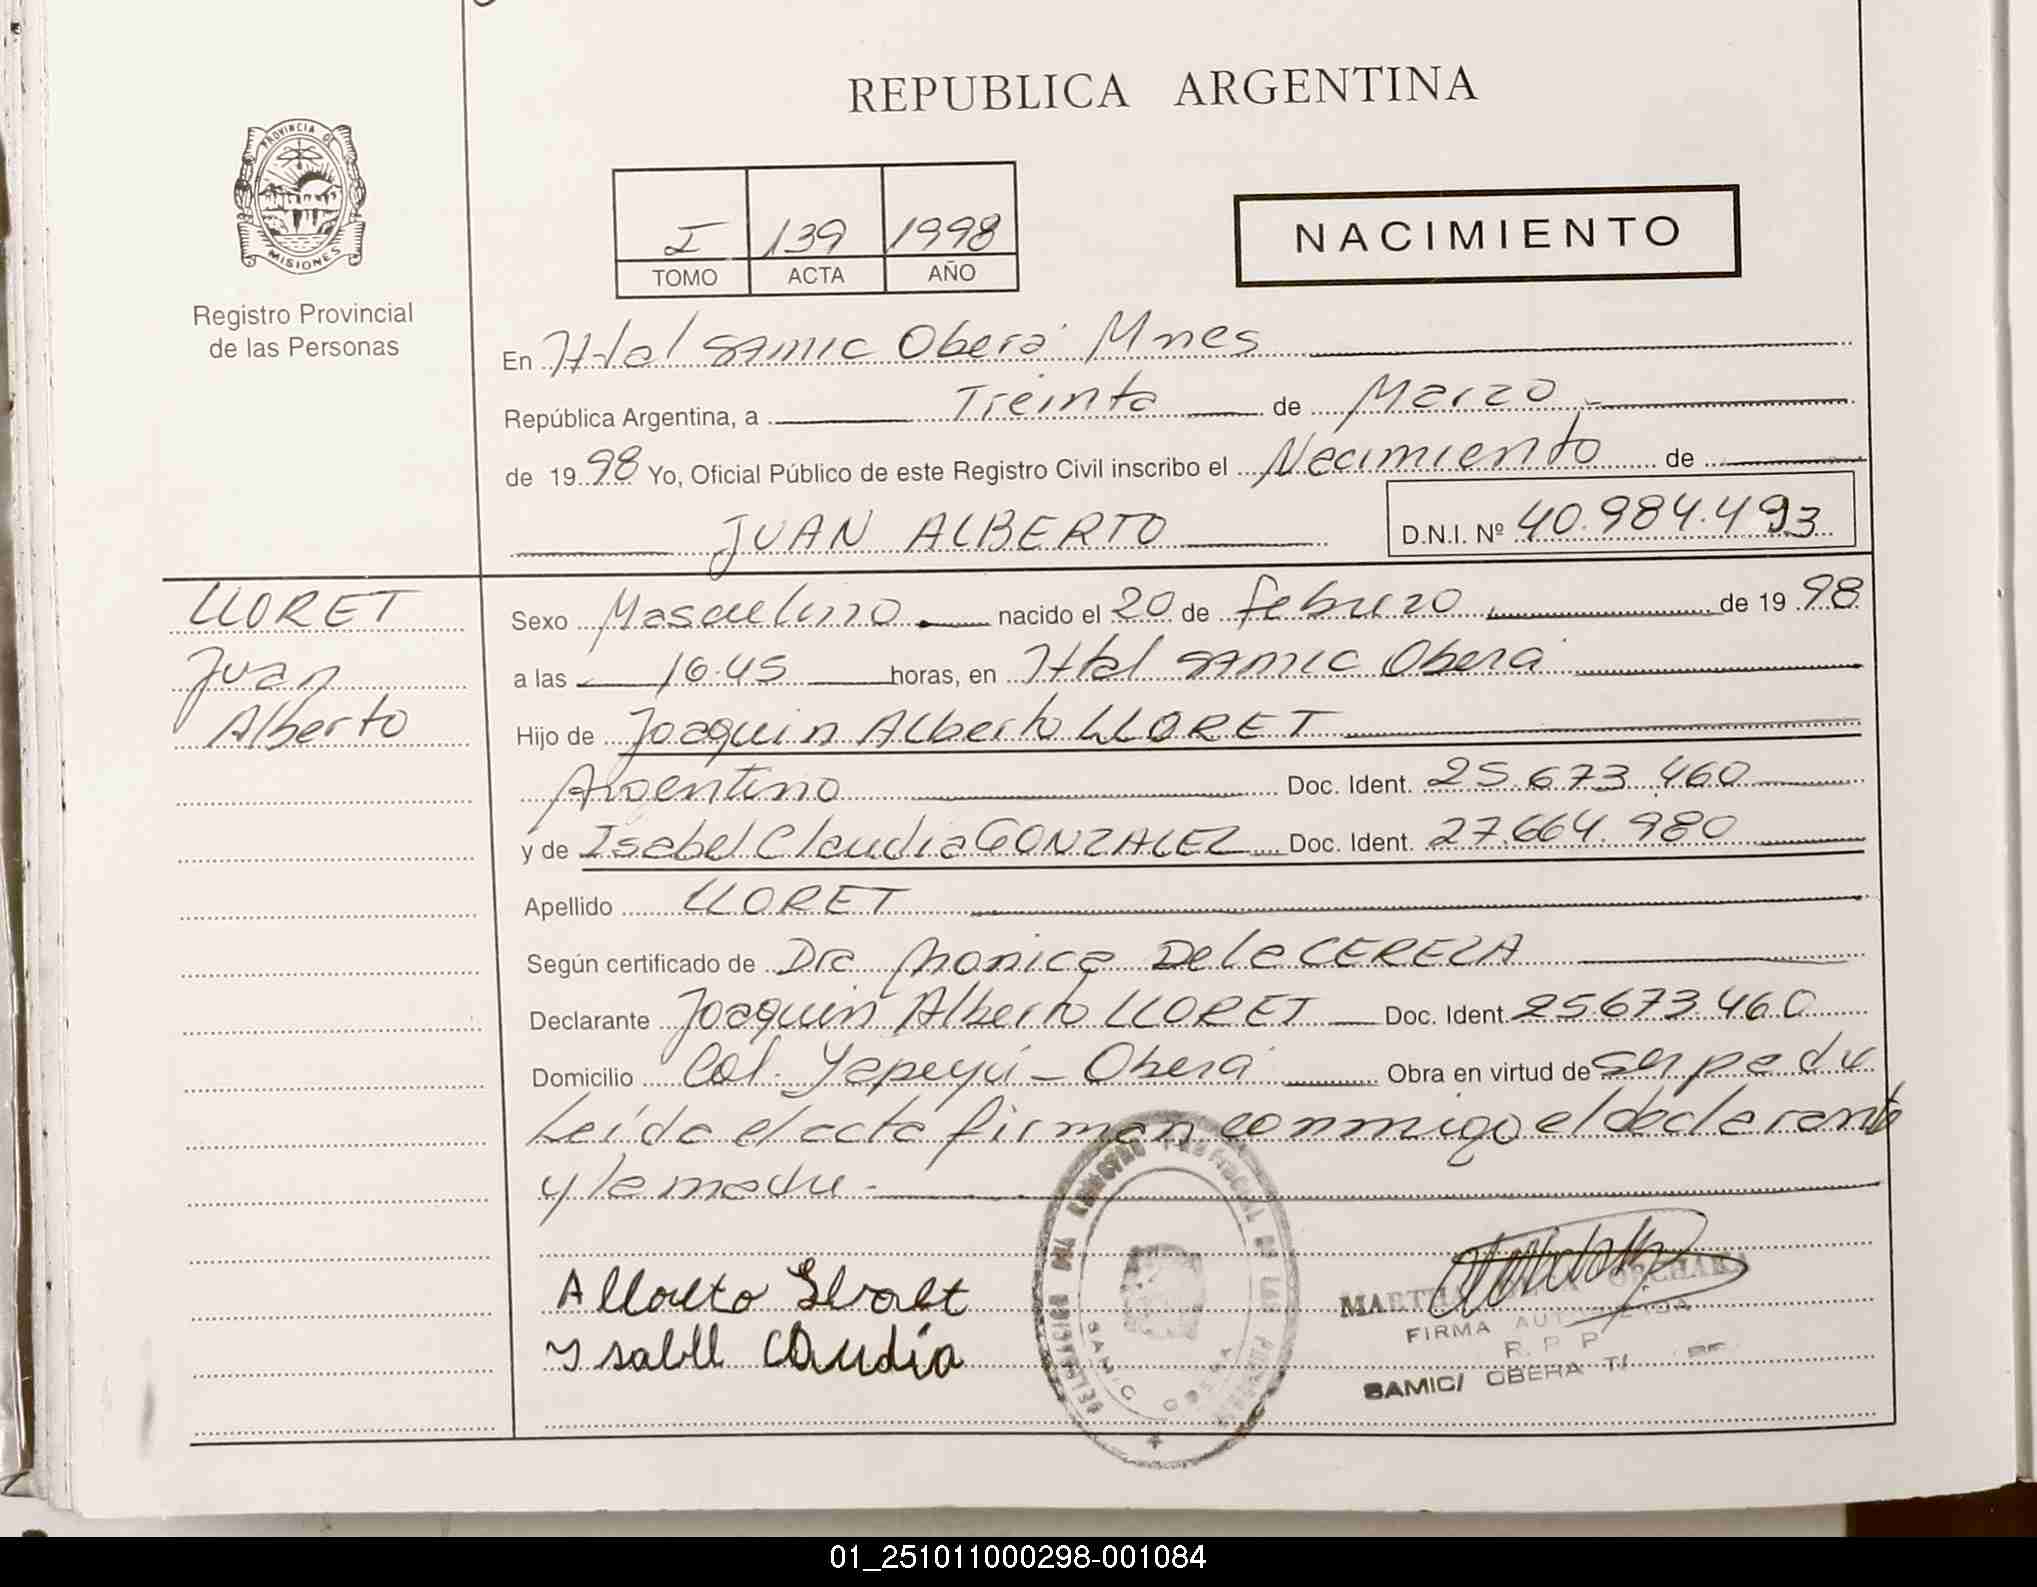 REPUBLICA ARGENTINA
PROVINCIA DE
MISIONES
Registro Provincial
de las Personas
I 139 1998
TOMO ACTA AÑO
NACIMIENTO
En Htal SAMIC Oberá Mnes
República Argentina, a Treinta de Marzo
de 1998 Yo, Oficial Público de este Registro Civil inscribo el Nacimiento de
JUAN ALBERTO D.N.I. Nº 40.984.493
LLORET
Juan
Alberto
Sexo Masculino nacido el 20 de febrero de 1998
a las 16.45 horas, en Htal SAMIC Oberá
Hijo de Joaquin Alberto LLORET
Argentino Doc. Ident. 25.673.460
y de Isabel Claudia GONZALEZ Doc. Ident. 27.664.980
Apellido LLORET
Según certificado de Dra Monica De la CEREZA
Declarante Joaquin Alberto LLORET Doc. Ident. 25673.460
Domicilio Col. Yapeyú - Oberá Obra en virtud de ser padre
Leída el acta firman conmigo el declarante
y la madre.-
Alberto
Isabel Claudia
SAMIC OBERA
FIRMA
R. P. P
SAMIC/ OBERA
01_251011000298-001084